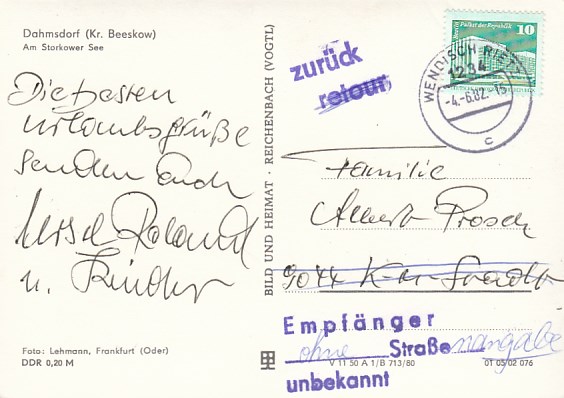 Dahmsdorf (Kr. Beeskow)
Am Storkower See
Die besten
Urlaubsgrüße
senden Euch
Ursel Roland
u. Kinder
Foto: Lehmann, Frankfurt (Oder)
DDR 0,20 M
BILD UND HEIMAT · REICHENBACH (VOGTL)
zurück
retour
Berlin Palast der Republik
10
WENDISCH RIETZ
1234
-4.-6.82.-15
c
Familie
Albert Prosch
9044 K-M-Stadt
Empfänger
ohne Straßenangabe
unbekannt
V 11 50 A 1/B 713/80
01 03 02 076